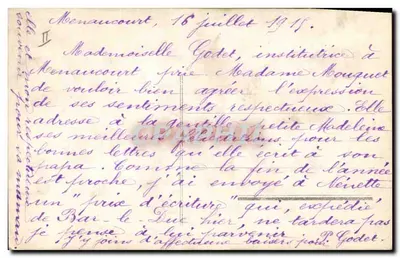 Menaucourt, 16 juillet 1915.
Mademoiselle Godet, institutrice à
Menaucourt prie Madame Mouquet
de vouloir bien agréer l'expression
de ses sentiments respectueux. Elle
adresse à la gentille petite Madeleine
ses meilleures pour les
bonnes lettres qu'elle écrit à son
papa. Comme la fin de l'année
est proche, j'ai envoyé à Ninette
un "prix d'écriture" qui, expédié
de Bar-le-Duc hier ne tardera pas
je pense à lui parvenir. P. Godet.
J'y joins d'affectueux baisers pour
II